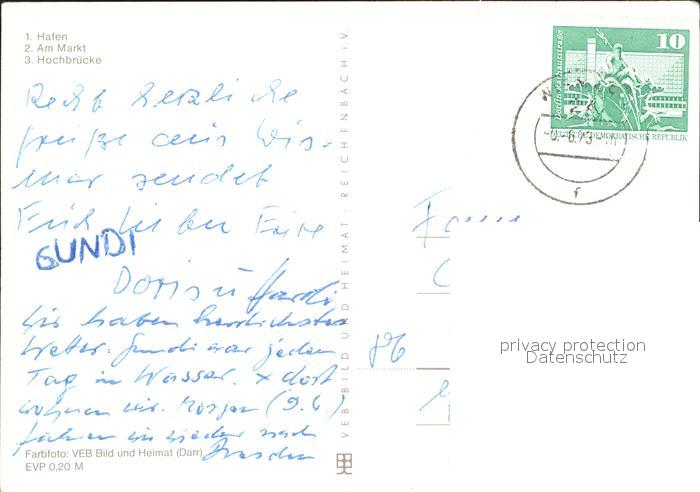 1. Hafen
2. Am Markt
3. Hochbrücke
Recht herzliche
Grüße aus Wis-
mar sendet
Euch lieber
GUNDI
Doris u Hardi
Wir haben herrlichstes
Wetter. Gundi war jeden
Tag im Wasser. x dort
wohnen wir. Morgen (9.6)
fahren wir wieder nach
Dresden
Farbfoto: VEB Bild und Heimat (Darr)
EVP 0,20 M
VEB BILD UND HEIMAT · REICHENBACH i.V.
10
Berlin Rathausstraße
DEUTSCHE DEMOKRATISCHE REPUBLIK
f
86
privacy protection
Datenschutz